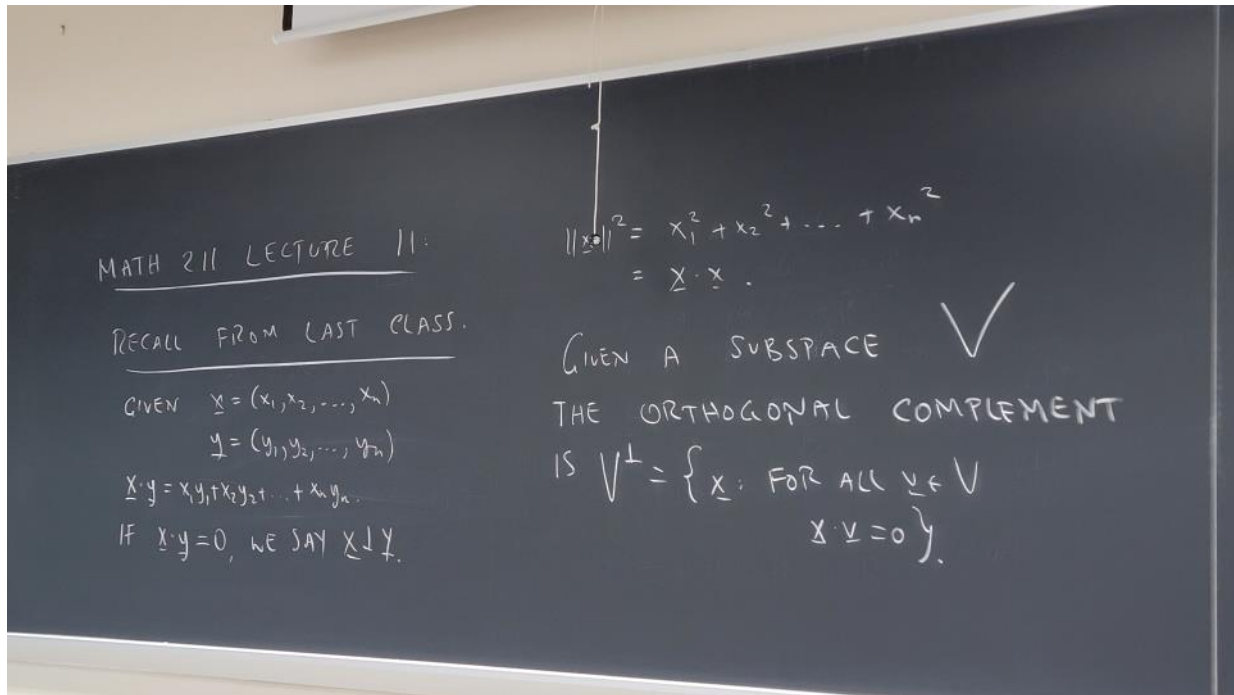 MATH 211 LECTURE 11:
RECALL FROM LAST CLASS.
GIVEN x̲ = (x₁, x₂, ..., xₙ)
y̲ = (y₁, y₂, ..., yₙ)
x̲·y̲ = x₁y₁+x₂y₂+...+xₙyₙ.
IF x̲·y̲=0, WE SAY x̲⊥y̲.
||x̲||² = x₁² + x₂² + .... + xₙ²
= x̲·x̲.
GIVEN A SUBSPACE V
THE ORTHOGONAL COMPLEMENT
IS V⊥ = { x̲: FOR ALL v̲ ∈ V
x̲·v̲ = 0 }.